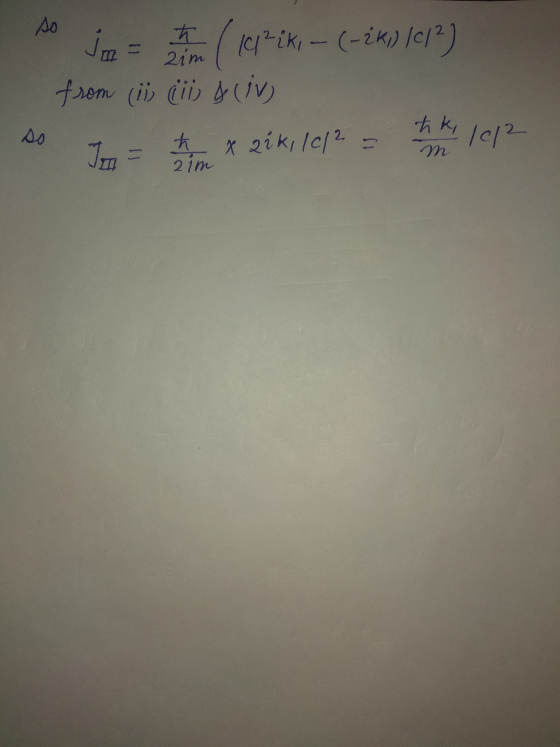 so
j_III = ℏ/2im ( |C|² ik₁ - (-ik₁) |C|² )
from (ii) (iii) & (iv)
so
J_III = ℏ/2im × 2ik₁ |C|² = ℏk₁/m |C|²